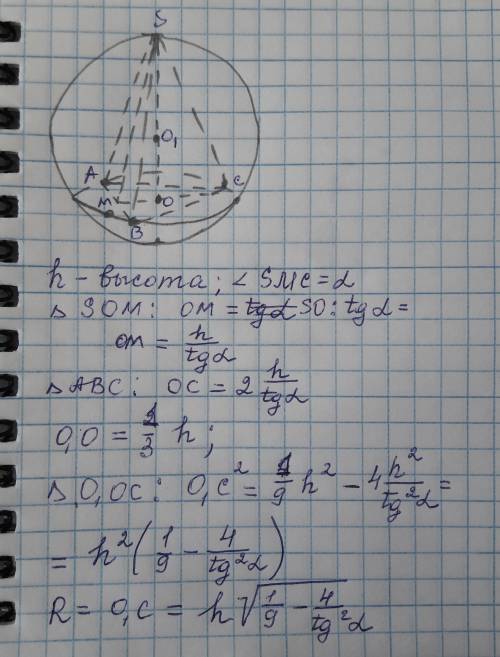 S
O₁
A
C
M
O
B
h - высота; ∠ SMC = α
Δ SOM: OM = SO : tg α =
OM = h/tg α
Δ ABC: OC = 2 h/tg α
O₁O = 1/3 h;
Δ O₁OC: O₁C² = 1/9 h² - 4 h²/tg²α =
= h² (1/9 - 4/tg²α)
R = O₁C = h √(1/9 - 4/tg²α)